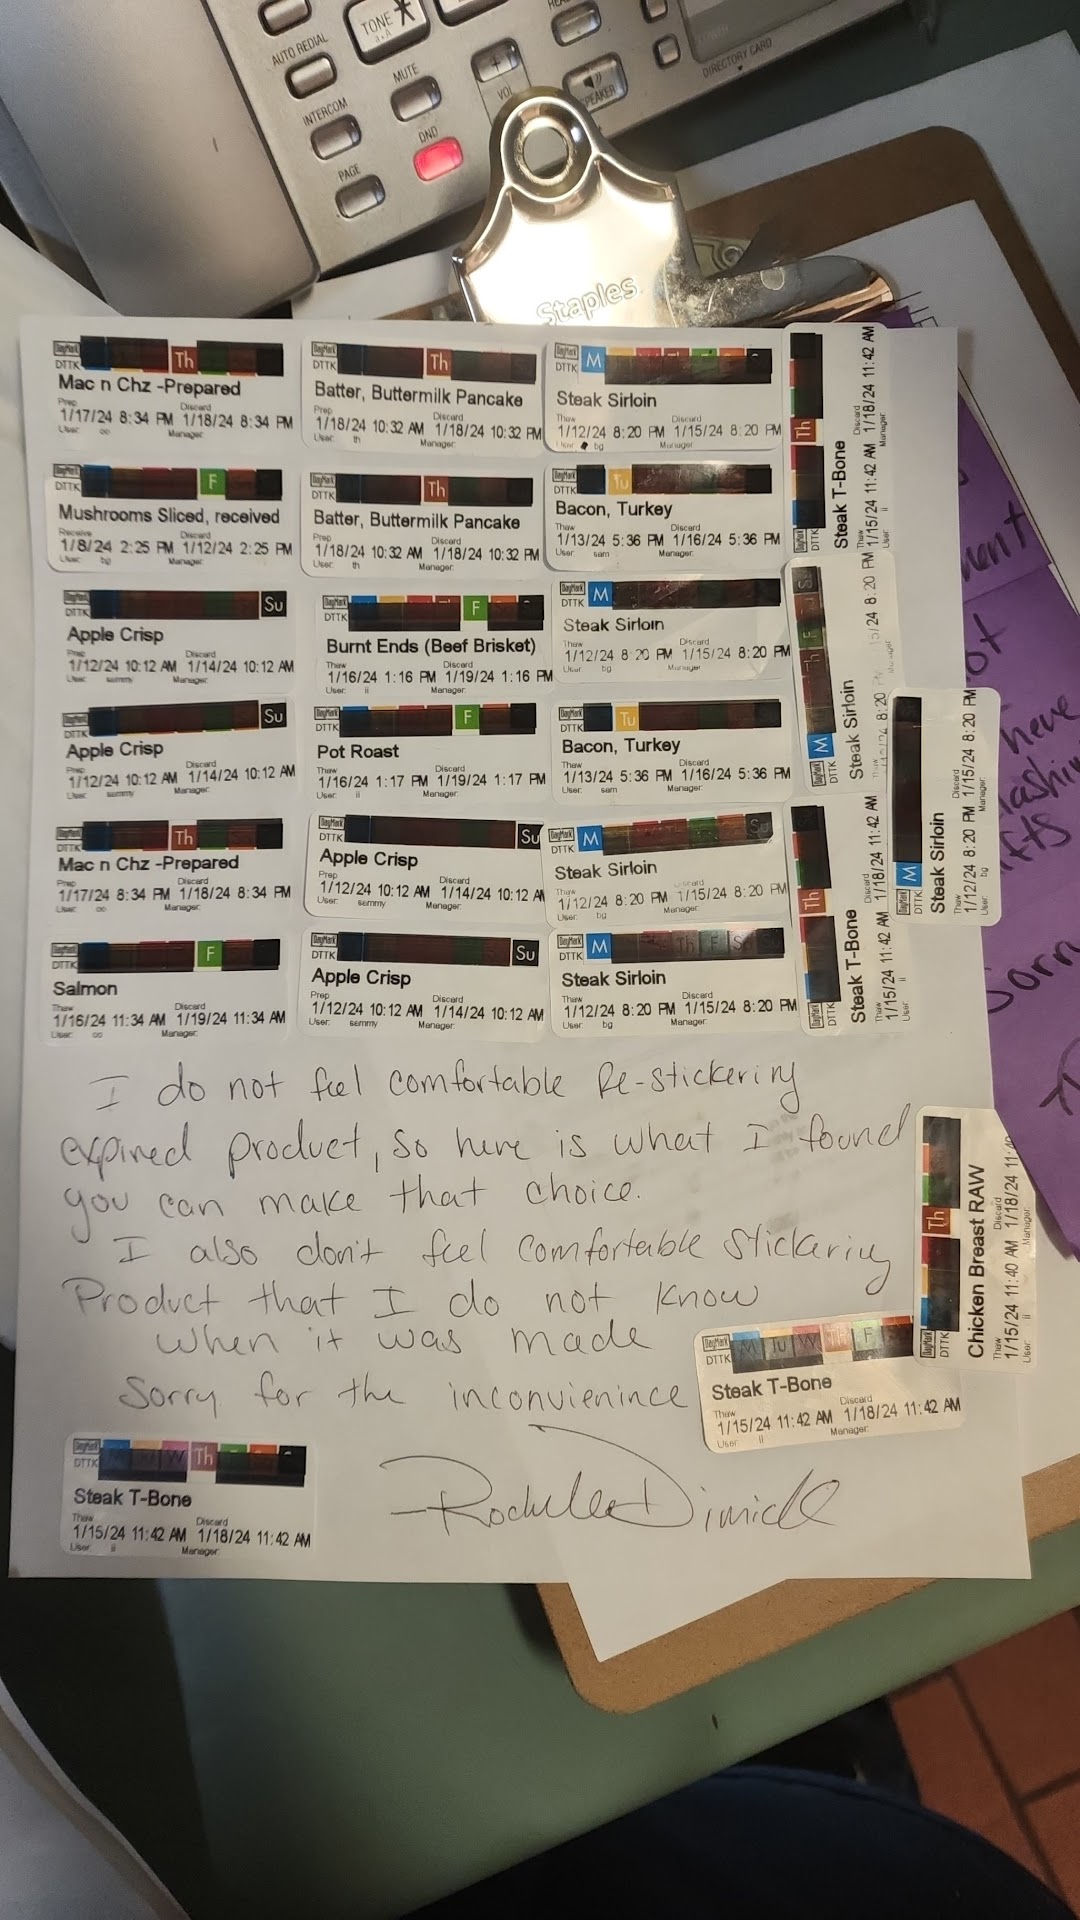 TONE
AUTO REDIAL
MUTE
VOL
SPEAKER
DIRECTORY CARD
INTERCOM
DND
PAGE
Staples
DayMark
DTTK
Th
Mac n Chz -Prepared
Prep Discard
1/17/24 8:34 PM 1/18/24 8:34 PM
User: oo Manager:
DayMark
DTTK
Th
Batter, Buttermilk Pancake
Prep Discard
1/18/24 10:32 AM 1/18/24 10:32 PM
User: th Manager:
DayMark
DTTK
M
Steak Sirloin
Thaw Discard
1/12/24 8:20 PM 1/15/24 8:20 PM
User: bg Manager:
DayMark
DTTK
Th
Steak T-Bone
Thaw Discard
1/15/24 11:42 AM 1/18/24 11:42 AM
User: ii Manager:
DayMark
DTTK
F
Mushrooms Sliced, received
Receive Discard
1/8/24 2:25 PM 1/12/24 2:25 PM
User: bg Manager:
DayMark
DTTK
Th
Batter, Buttermilk Pancake
Prep Discard
1/18/24 10:32 AM 1/18/24 10:32 PM
User: th Manager:
DayMark
DTTK
Tu
Bacon, Turkey
Thaw Discard
1/13/24 5:36 PM 1/16/24 5:36 PM
User: sam Manager:
DayMark
DTTK
Su
Apple Crisp
Prep Discard
1/12/24 10:12 AM 1/14/24 10:12 AM
User: sammy Manager:
DayMark
DTTK
F
Burnt Ends (Beef Brisket)
Thaw Discard
1/16/24 1:16 PM 1/19/24 1:16 PM
User: ii Manager:
DayMark
DTTK
M
Steak Sirloin
Thaw Discard
1/12/24 8:20 PM 1/15/24 8:20 PM
User: bg Manager:
DayMark
DTTK
M Th F Su
Steak Sirloin
Thaw
8:20 5/24 8:20 PM
Manager:
DayMark
DTTK
Su
Apple Crisp
Prep Discard
1/12/24 10:12 AM 1/14/24 10:12 AM
User: sammy Manager:
DayMark
DTTK
F
Pot Roast
Thaw Discard
1/16/24 1:17 PM 1/19/24 1:17 PM
User: ii Manager:
DayMark
DTTK
Tu
Bacon, Turkey
Thaw Discard
1/13/24 5:36 PM 1/16/24 5:36 PM
User: sam Manager:
DayMark
DTTK
M
Steak Sirloin
Thaw Discard
1/12/24 8:20 PM 1/15/24 8:20 PM
User: bg Manager:
DayMark
DTTK
Th
Mac n Chz -Prepared
Prep Discard
1/17/24 8:34 PM 1/18/24 8:34 PM
User: oo Manager:
DayMark
DTTK
Su
Apple Crisp
Prep Discard
1/12/24 10:12 AM 1/14/24 10:12 AM
User: sammy Manager:
DayMark
DTTK
M Su
Steak Sirloin
Thaw Discard
1/12/24 8:20 PM 1/15/24 8:20 PM
User: bg Manager:
DayMark
DTTK
Th
Steak T-Bone
Thaw Discard
1/15/24 11:42 AM 1/18/24 11:42 AM
User: ii Manager:
DayMark
DTTK
F
Salmon
Thaw Discard
1/16/24 11:34 AM 1/19/24 11:34 AM
User: oo Manager:
DayMark
DTTK
Su
Apple Crisp
Prep Discard
1/12/24 10:12 AM 1/14/24 10:12 AM
User: sammy Manager:
DayMark
DTTK
M Th F Sa Su
Steak Sirloin
Thaw Discard
1/12/24 8:20 PM 1/15/24 8:20 PM
User: bg Manager:
I do not feel comfortable Re-stickering
expired product, so here is what I found
you can make that choice.
I also don't feel comfortable Stickering
Product that I do not know
when it was made
Sorry for the inconvienince
DayMark
DTTK
Th
Chicken Breast RAW
Thaw Discard
1/15/24 11:40 AM 1/18/24 11:40
User: ii Manager:
DayMark
DTTK
M Tu W Th F
Steak T-Bone
Thaw Discard
1/15/24 11:42 AM 1/18/24 11:42 AM
User: ii Manager:
DayMark
DTTK
W Th
Steak T-Bone
Thaw Discard
1/15/24 11:42 AM 1/18/24 11:42 AM
User: ii Manager:
-Rochelle Dimick